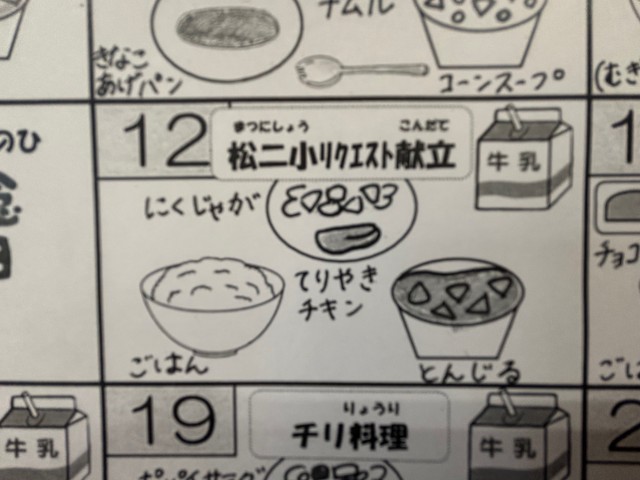 ナムル
きなこ
あげパン
コーンスープ
(むぎ
のひ
12
まつにしょう こんだて
松二小リクエスト献立
牛乳
にくじゃが
てりやき
チキン
ごはん
とんじる
チョコ
ごは
19
りょうり
チリ料理
牛乳
牛乳